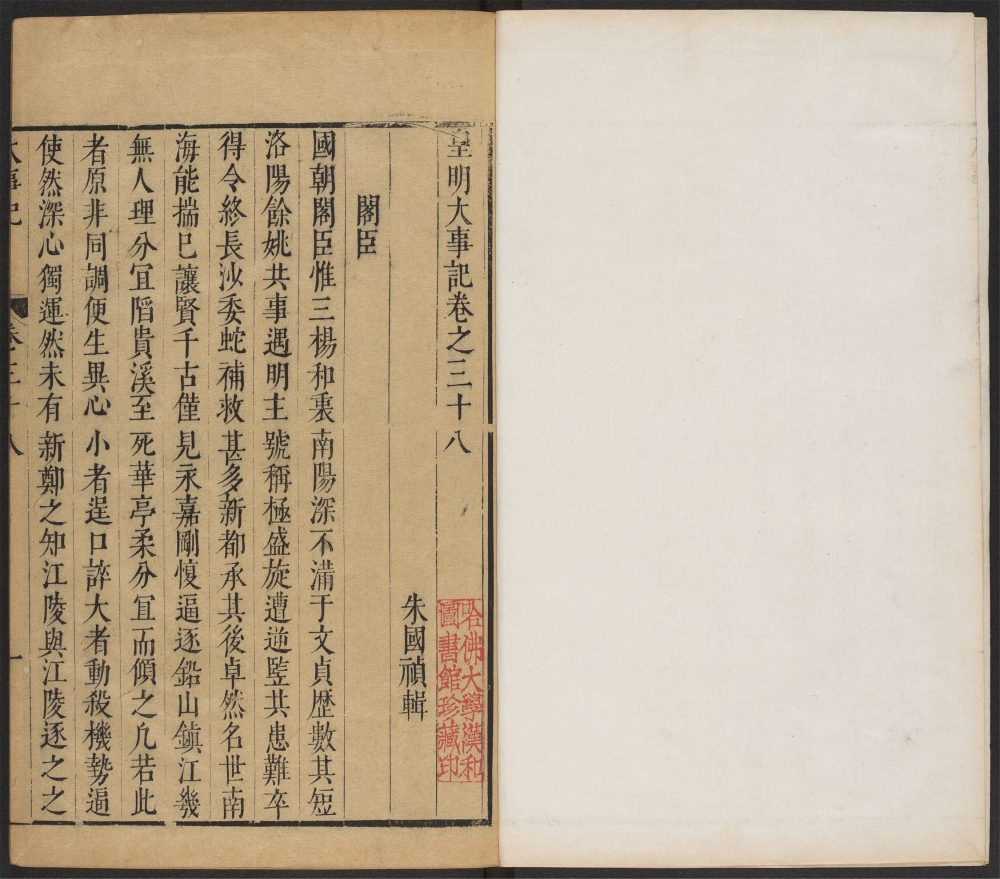 皇明大事記卷之三十八
哈佛大學漢和
圖書館珍藏印
朱國禎輯
閣臣
國朝閣臣惟三楊和衷南陽深不滿于文貞歷數其短
洛陽餘姚共事遇明主號稱極盛旋遭逆監共患難卒
得令終長沙委蛇補救甚多新都承其後卓然名世南
海能揣已讓賢千古僅見永嘉剛愎逼逐鉛山鎮江幾
無人理分宜䧟貴溪至死華亭柔分宜而傾之凢若此
者原非同調便生異心小者逞口誶大者動殺機勢逼
使然深心獨運然未有新鄭之知江陵與江陵逐之之
大事記
卷三十八
一